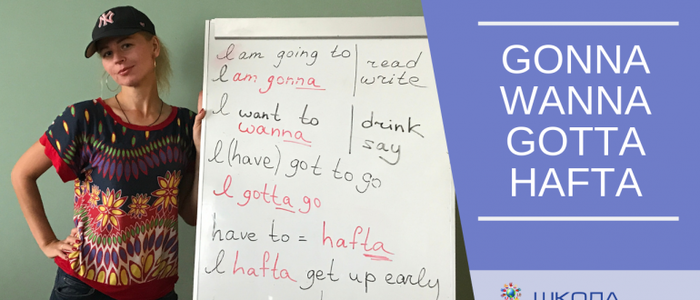 NY
I am going to
I am gonna
read
write
I want to
wanna
drink
say
I (have) got to go
I gotta go
have to = hafta
I hafta get up early
GONNA
WANNA
GOTTA
HAFTA
ШКОЛА